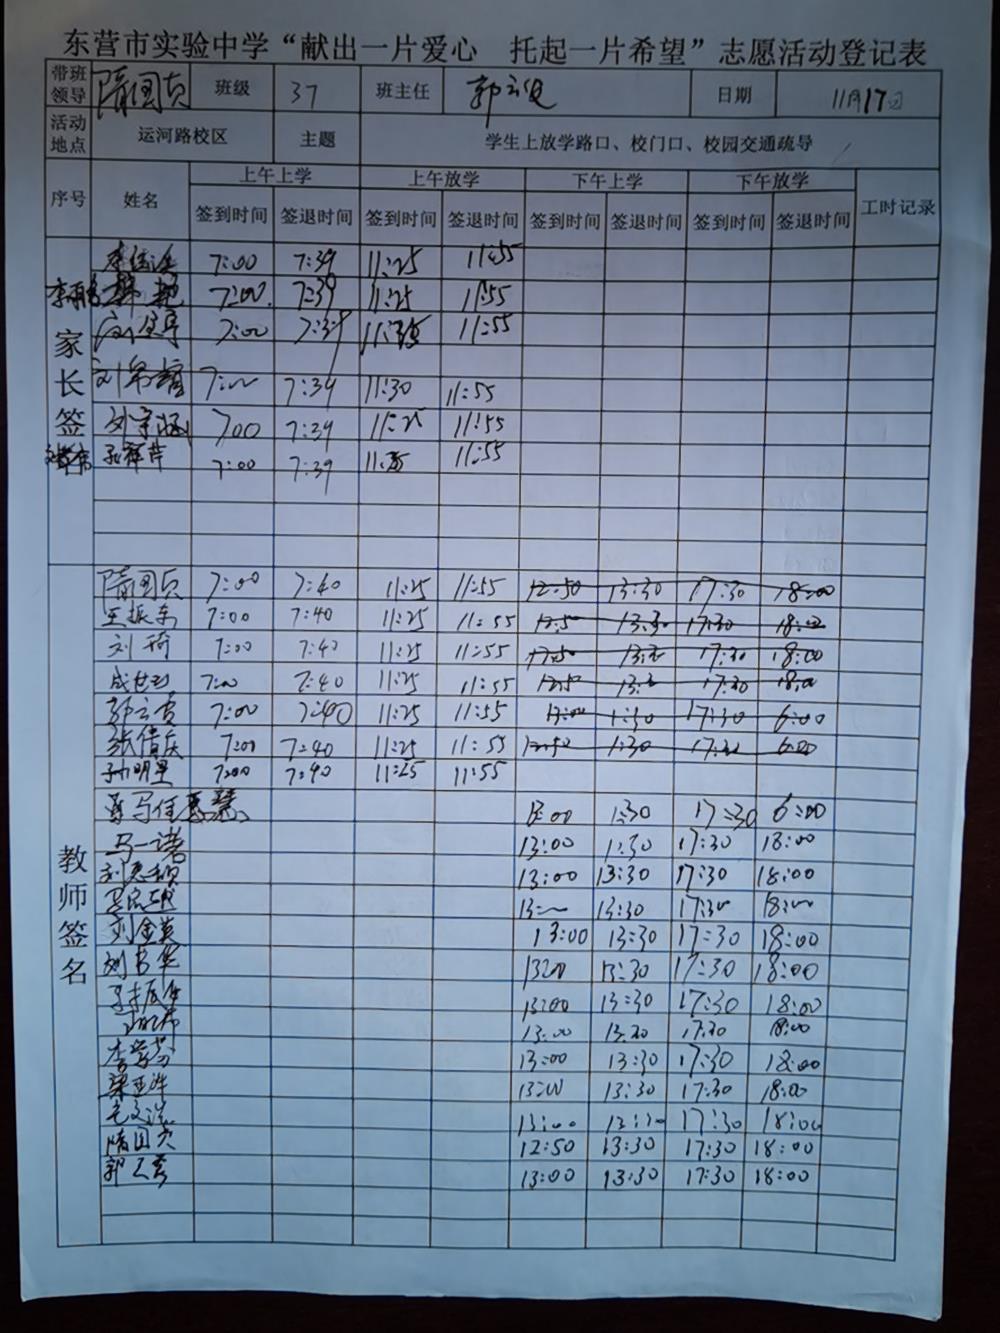 东营市实验中学“献出一片爱心 托起一片希望”志愿活动登记表
带班领导 隋国贞 班级 37 班主任 郭云 日期 11月17日
活动地点 运河路校区 主题 学生上放学路口、校门口、校园交通疏导
序号 姓名 上午上学 上午放学 下午上学 下午放学 工时记录
签到时间 签退时间 签到时间 签退时间 签到时间 签退时间 签到时间 签退时间
家长签
7:00 7:39 11:25 11:55
7:00 7:39 11:25 11:55
7:00 7:39 11:55
刘 7:00 7:39 11:30 11:55
刘宇涵 7:00 7:39 11:25 11:55
孔祥萍 7:00 7:39 11:25 11:55
教师签名
隋国贞 7:00 7:40 11:25 11:55 12:50 13:30 17:30 18:00
王振东 7:00 7:40 11:25 11:55 12:50 13:30 17:30 18:00
刘琦 7:00 7:40 11:25 11:55 12:50 13:30 17:30 18:00
7:00 7:40 11:25 11:55 12:50 13:30 17:30 18:00
郭云 7:00 7:40 11:25 11:55 13:00 1:30 17:30 6:00
张倩 7:00 7:40 11:25 11:55 12:50 1:30 17:30 6:00
孙明星 7:00 7:40 11:25 11:55
13:00 1:30 17:30 6:00
马一诺 13:00 1:30 17:30 18:00
刘 13:00 13:30 17:30 18:00
13:00 13:30 17:30 18:00
刘金英 13:00 13:30 17:30 18:00
刘书华 13:00 13:30 17:30 18:00
13:00 13:30 17:30 18:00
13:00 13:30 17:30 18:00
李学芬 13:00 13:30 17:30 18:00
梁 13:00 13:30 17:30 18:00
13:00 13:30 17:30 18:00
隋国贞 12:50 13:30 17:30 18:00
郭云 13:00 13:30 17:30 18:00